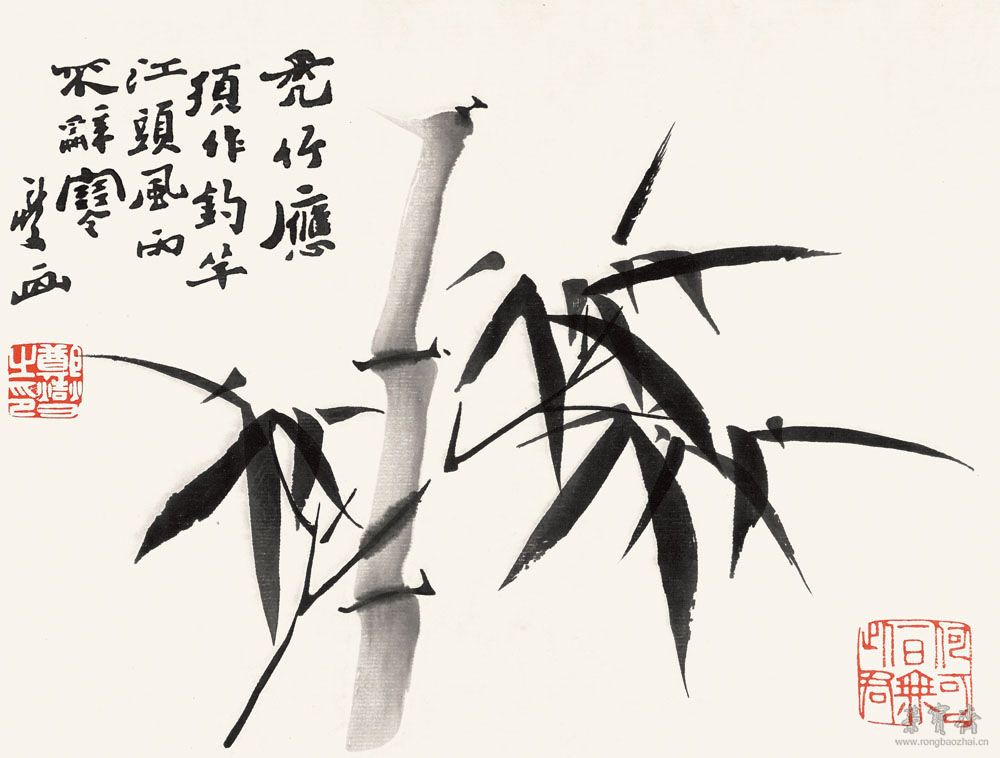 禿竹應
須作釣竿
江頭風雨
不辭寒
画
何可一日無此君
榮寶齋
www.rongbaozhai.cn